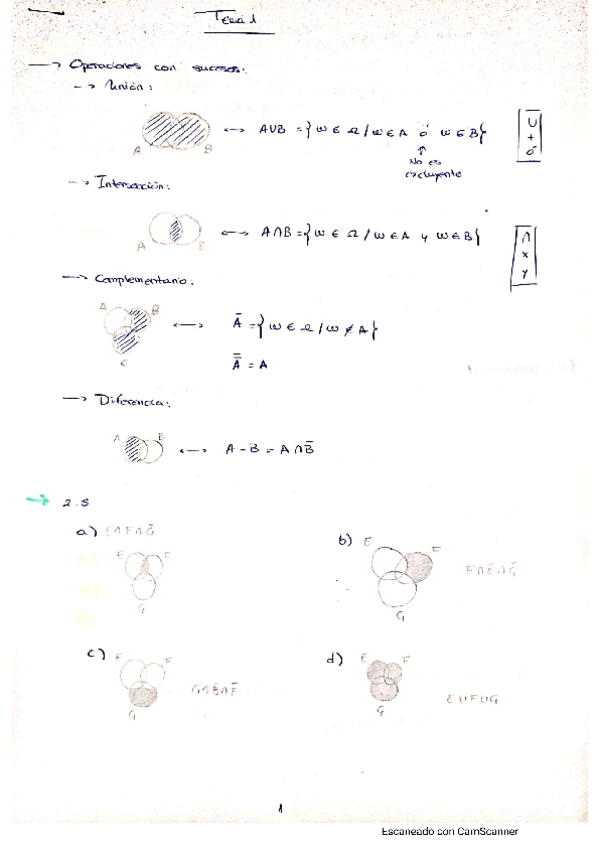 Tema 1
—> Operaciones con sucesos:
-> Unión:
A B <-> A∪B = {ω ∈ Ω / ω ∈ A ó ω ∈ B}
↑
No es
excluyente
∪
+
ó
-> Intersección:
A B <-> A∩B = {ω ∈ Ω / ω ∈ A y ω ∈ B}
∩
x
y
—> Complementario:
A B C <-> Ā = {ω ∈ Ω / ω ∉ A}
A̿ = A
—> Diferencia:
A B <-> A - B = A ∩ B̄
-> 2.5
a) E∩F∩Ḡ
E F
G
b) E F
G
F∩Ē∩Ḡ
c) F F
G
G∩Ē∩F̄
d) E F
G
E∪F∪G
1
Escaneado con CamScanner